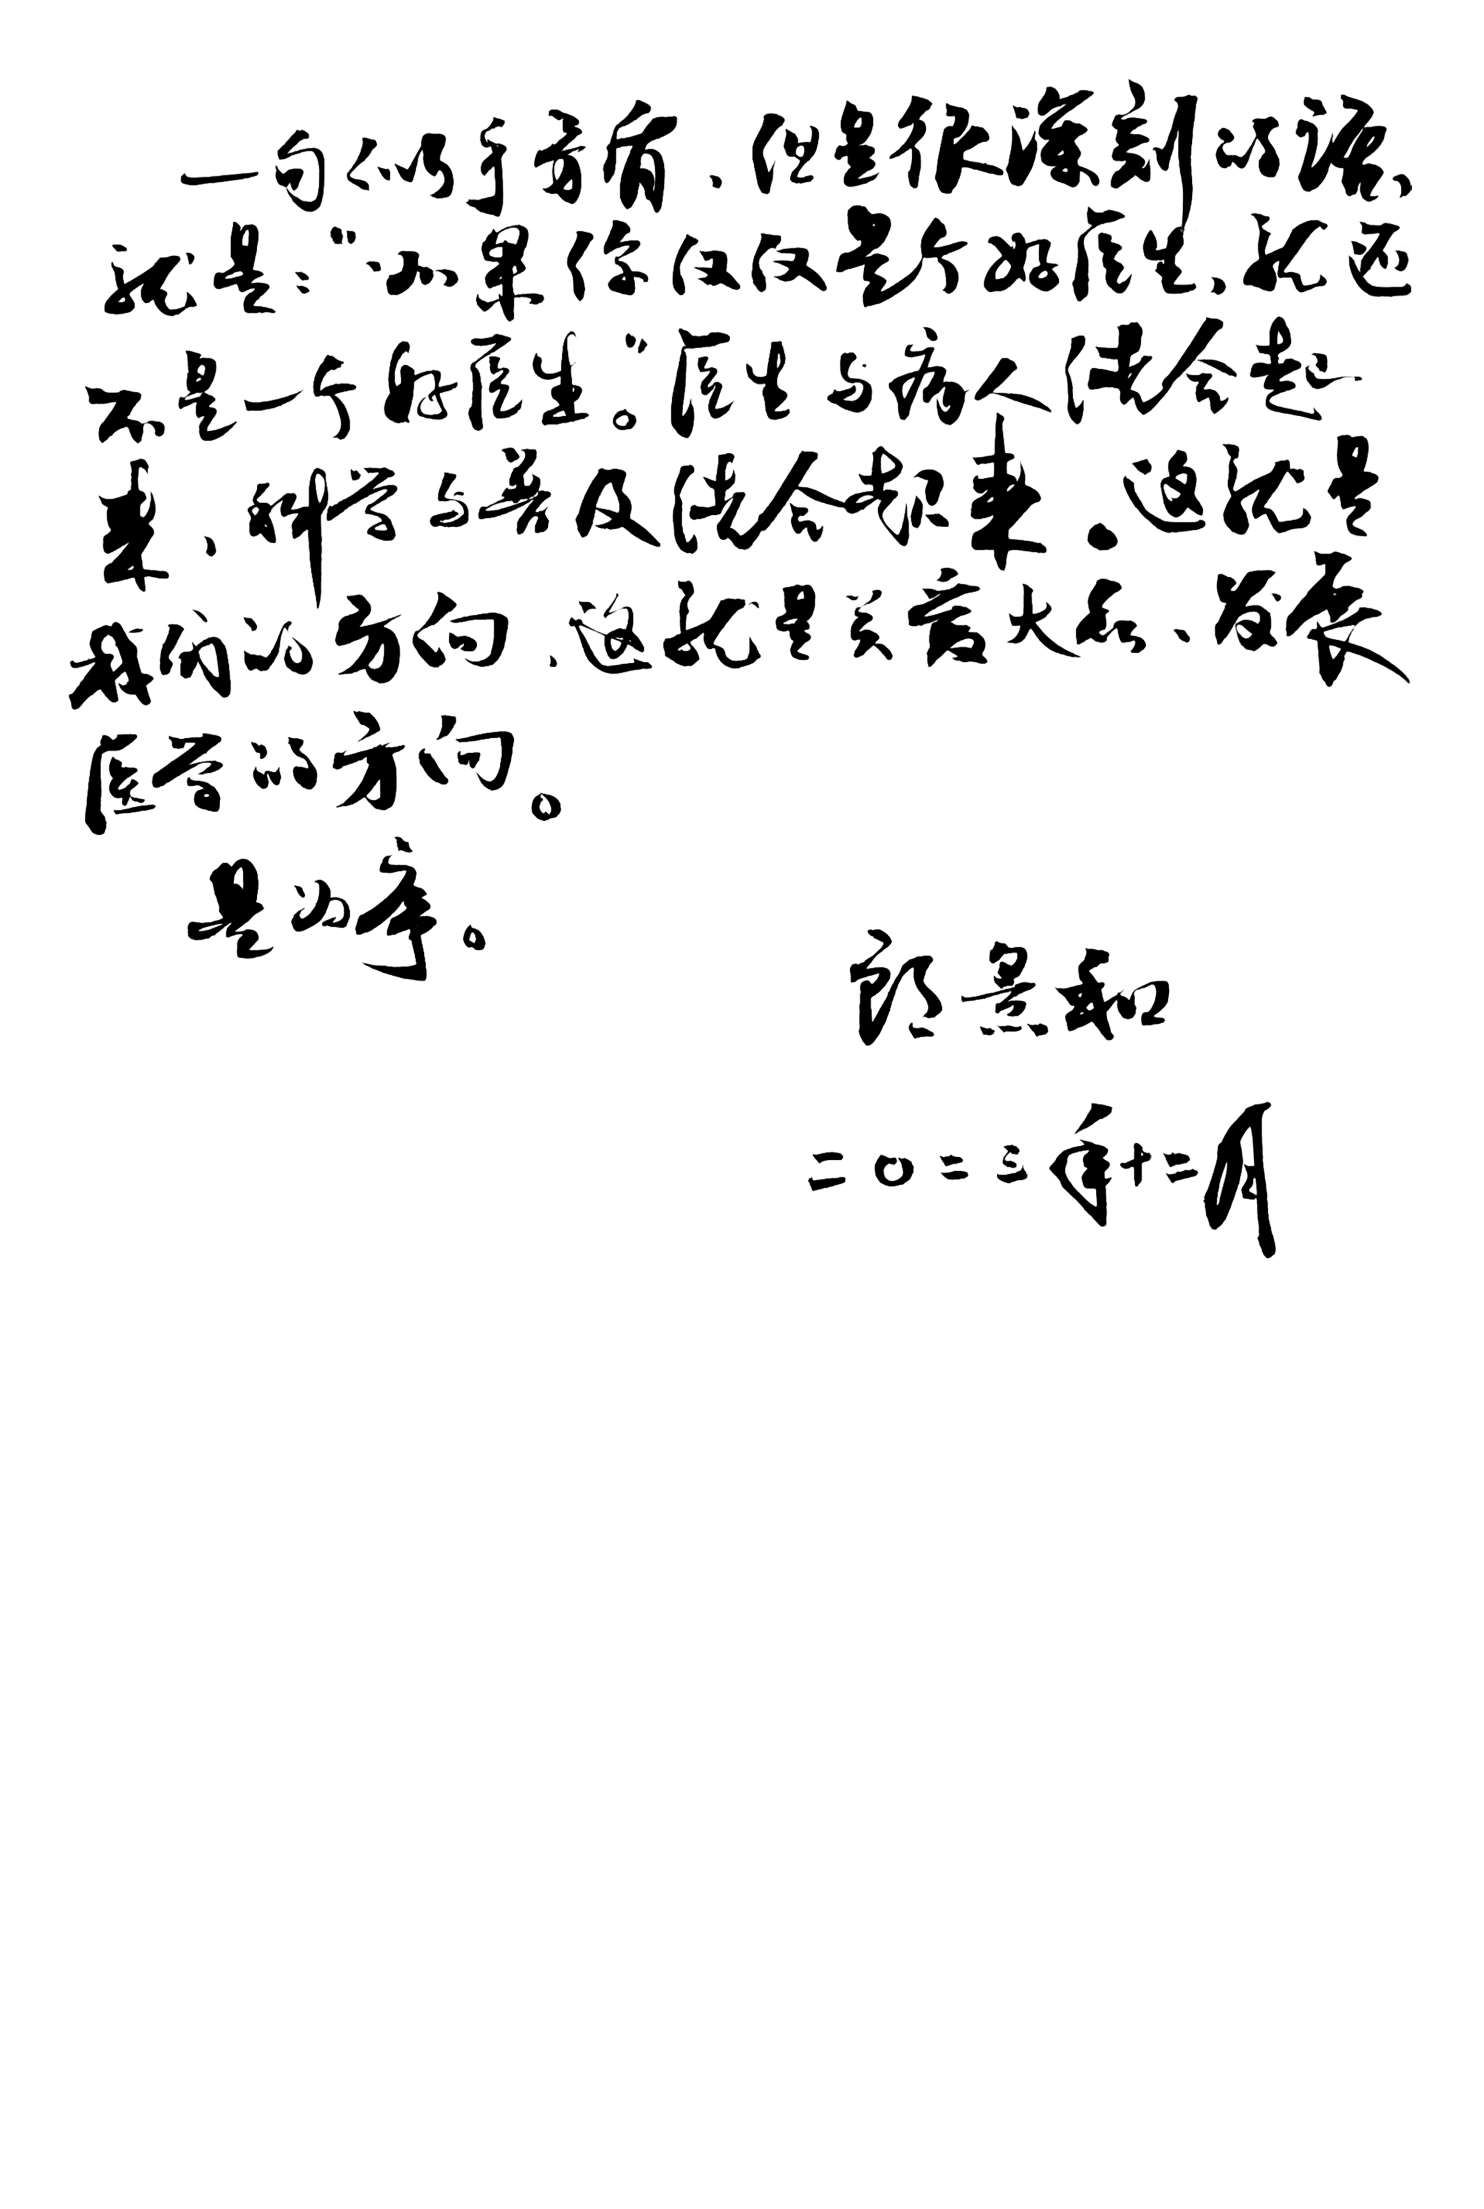 一句似乎奇葩、但是很深刻的话，
就是：“如果你仅仅是个好医生，就还
不是一个好医生。”医生与病人结合起
来，科学与普及结合起来。这就是
我们的方向，这就是关爱大众、发展
医学的方向。
是为序。
郎景和
二〇二三年十二月